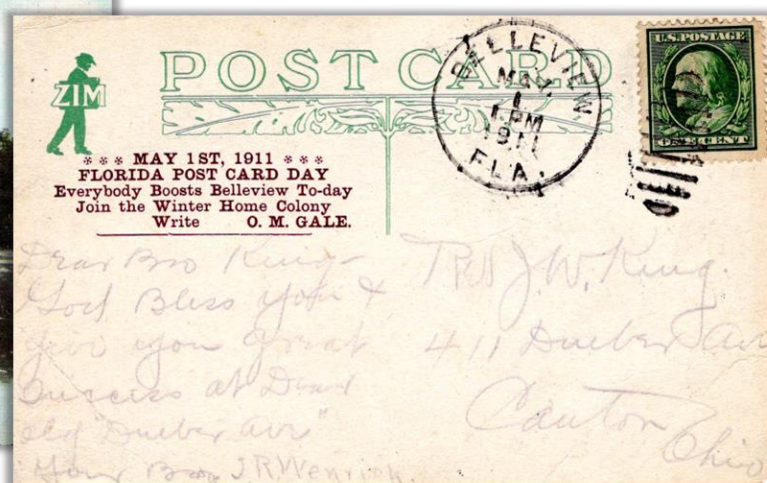 ZIM
POST CARD
BELLEVIEW
MAY
1
1 PM
1911
FLA.
U.S. POSTAGE
ONE CENT
*** MAY 1ST, 1911 ***
FLORIDA POST CARD DAY
Everybody Boosts Belleview To-day
Join the Winter Home Colony
Write O. M. GALE.
Dear Bro King-
God Bless you &
give you great
Success at Dear
old "Dueber Ave"
Your Bro J.R. Wenrick.
Rev J. W. King.
411 Dueber Ave
Canton
Ohio